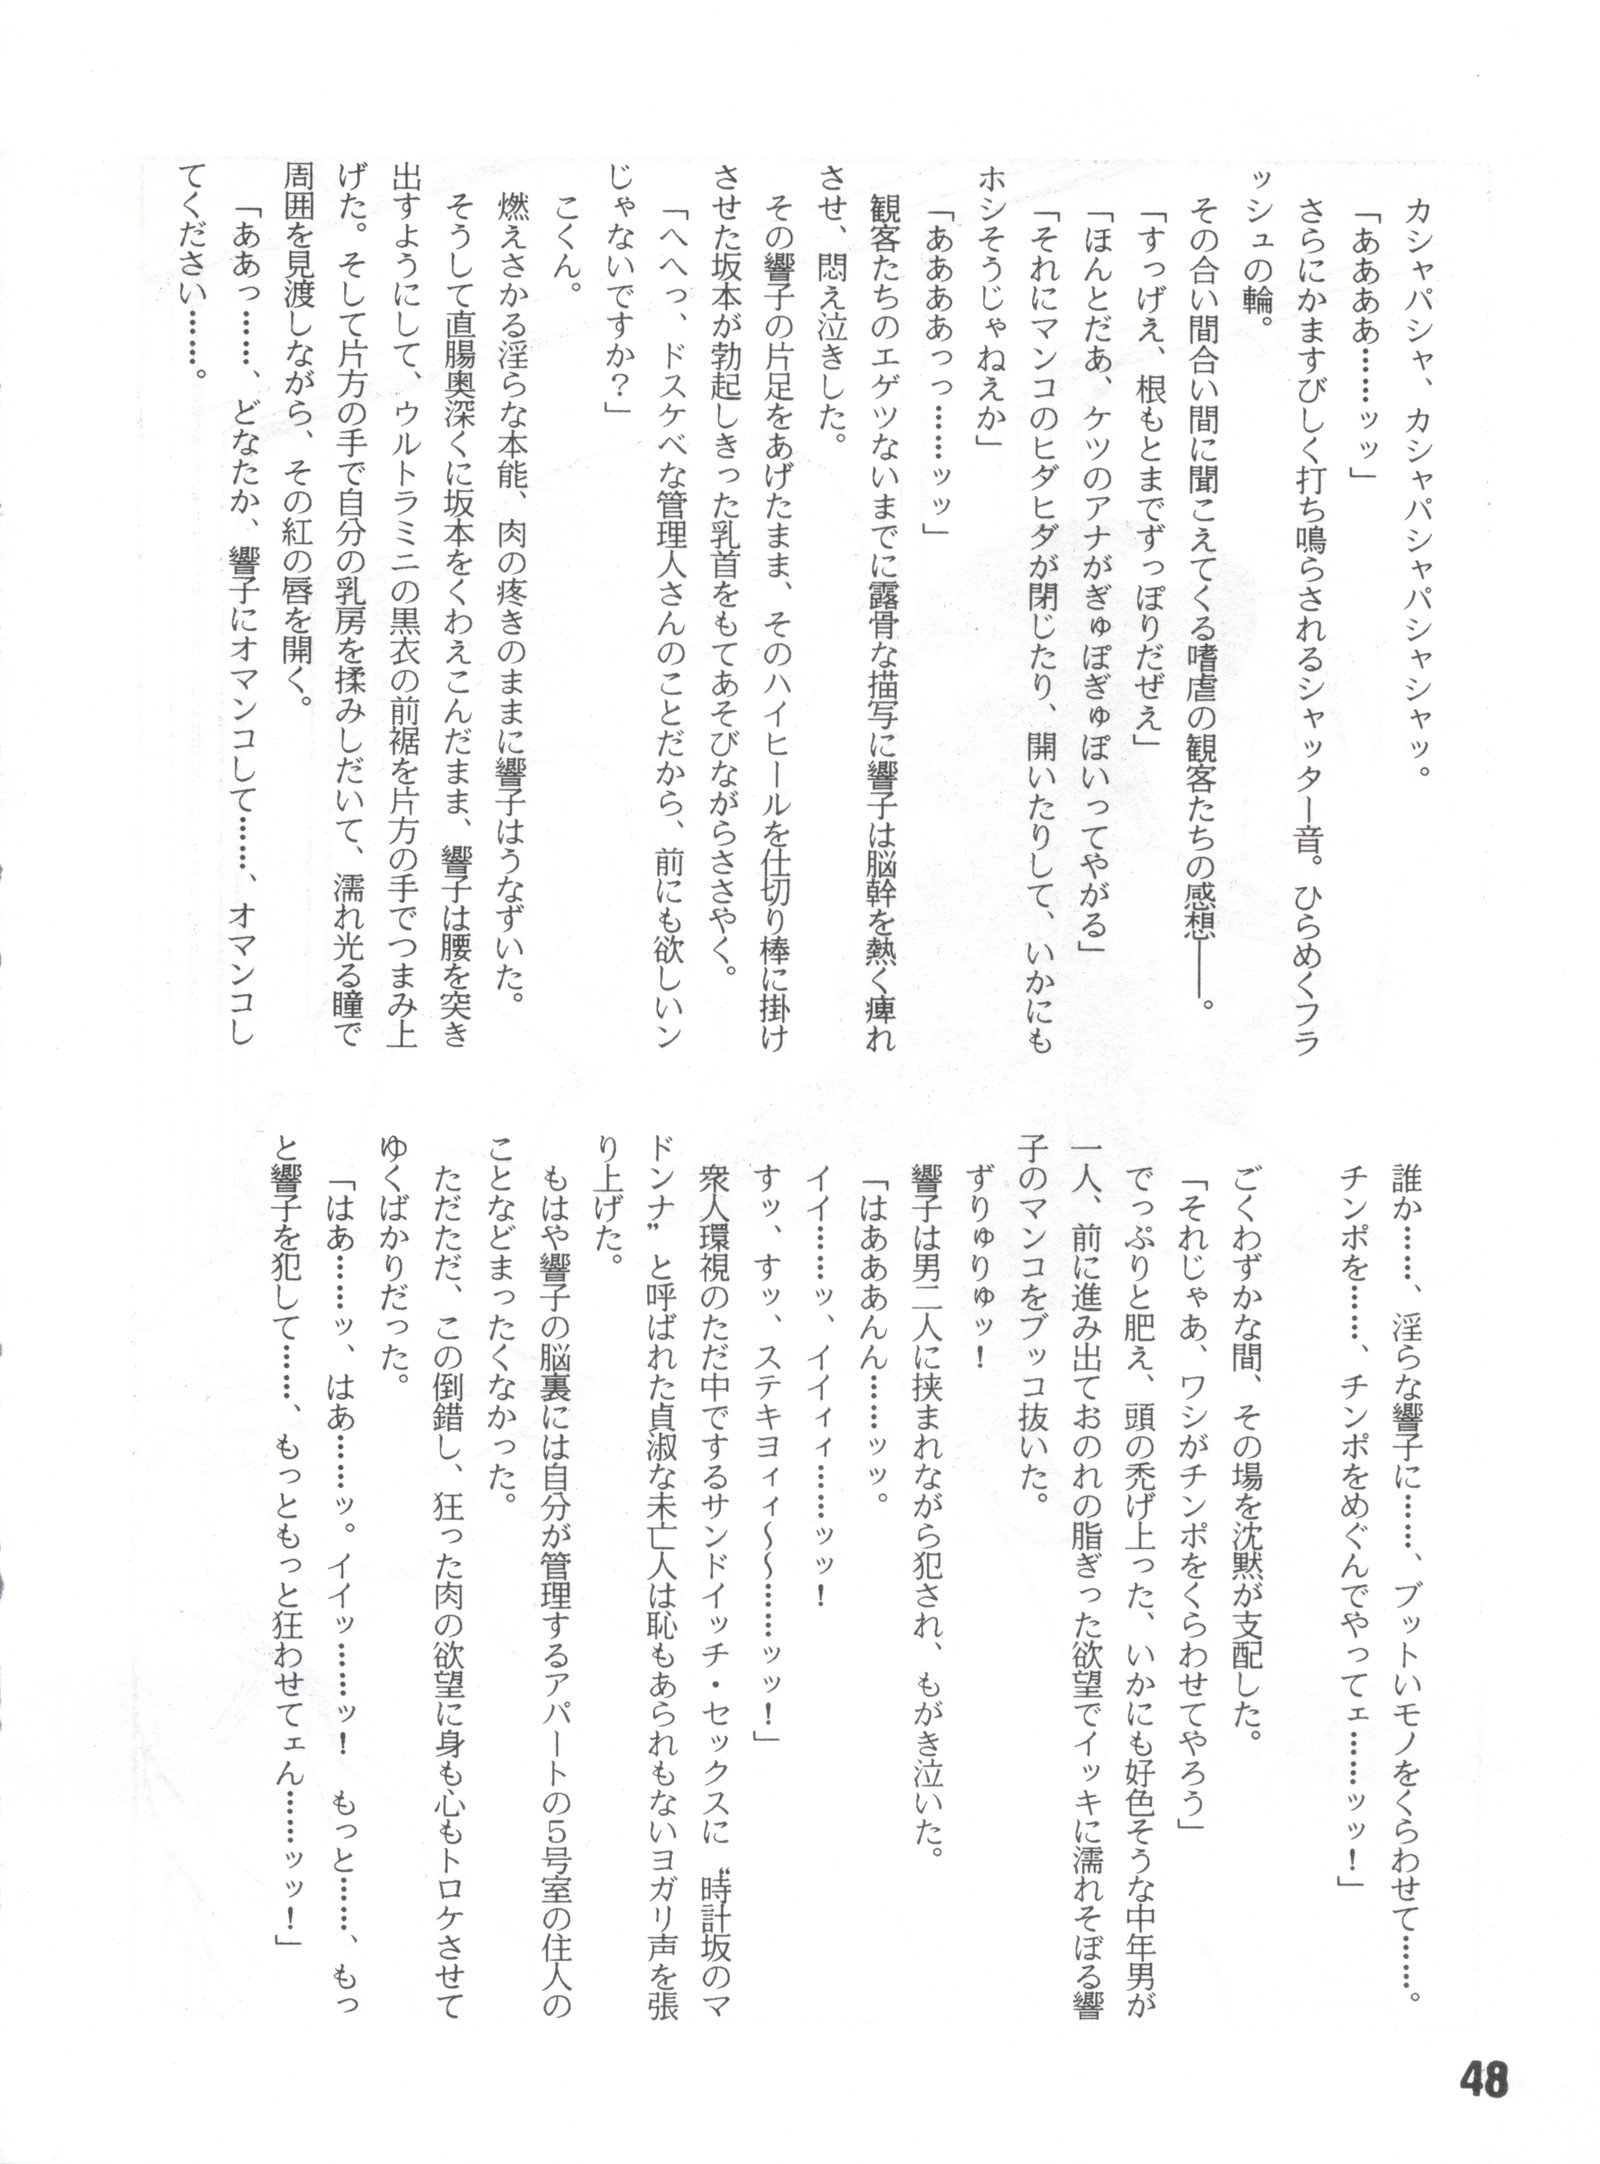 カシャパシャ、カシャパシャパシャシャッ。
「ああああ……ッッ」
さらにかますびしく打ち鳴らされるシャッター音。ひらめくフラ
ッシュの輪。
その合い間合い間に聞こえてくる嗜虐の観客たちの感想──。
「すっげえ、根もとまでずっぽりだぜえ」
「ほんとだあ、ケツのアナがぎゅぽぎゅぽいってやがる」
「それにマンコのヒダヒダが閉じたり、開いたりして、いかにも
ホシそうじゃねえか」
「ああああっっ……ッッ」
観客たちのエゲツないまでに露骨な描写に響子は脳幹を熱く痺れ
させ、悶え泣きした。
その響子の片足をあげたまま、そのハイヒールを仕切り棒に掛け
させた坂本が勃起しきった乳首をもてあそびながらささやく。
「へへっ、ドスケベな管理人さんのことだから、前にも欲しいン
じゃないですか？」
こくん。
燃えさかる淫らな本能、肉の疼きのままに響子はうなずいた。
そうして直腸奥深くに坂本をくわえこんだまま、響子は腰を突き
出すようにして、ウルトラミニの黒衣の前裾を片方の手でつまみ上
げた。そして片方の手で自分の乳房を揉みしだいて、濡れ光る瞳で
周囲を見渡しながら、その紅の唇を開く。
「ああっ……、どなたか、響子にオマンコして……、オマンコし
てください……。
誰か……、淫らな響子に……、ブットいモノをくらわせて……。
チンポを……、チンポをめぐんでやってェ……ッッ！」
ごくわずかな間、その場を沈黙が支配した。
「それじゃあ、ワシがチンポをくらわせてやろう」
でっぷりと肥え、頭の禿げ上った、いかにも好色そうな中年男が
一人、前に進み出ておのれの脂ぎった欲望でイッキに濡れそぼる響
子のマンコをブッコ抜いた。
ずりゅりゅッ！
響子は男二人に挟まれながら犯され、もがき泣いた。
「はあああんん……ッッ。
イイ……ッ、イイィィ……ッッ！
すッ、すッ、ステキヨィィ〜〜……ッッ！」
衆人環視のただ中でするサンドイッチ・セックスに〝時計坂のマ
ドンナ〟と呼ばれた貞淑な未亡人は恥もあられもないヨガリ声を張
り上げた。
もはや響子の脳裏には自分が管理するアパートの５号室の住人の
ことなどまったくなかった。
ただただ、この倒錯し、狂った肉の欲望に身も心もトロケさせて
ゆくばかりだった。
「はあ……ッ、はあ……ッ。イイッ……ッ！　もっと……、もっ
と響子を犯して……、もっともっと狂わせてェん……ッッ！」
48